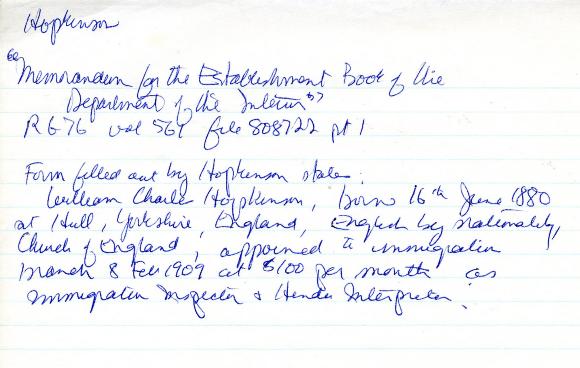 Hopkinson
"Memorandum for the Establishment Book of the
Department of the Interior"
RG76 vol 561 file 808722 pt 1
Form filled out by Hopkinson states:
William Charles Hopkinson, born 16th June 1880
at Hull, Yorkshire, England, English by nationality,
Church of England, appointed to immigration
branch 8 Feb 1909 at $100 per month as
Immigration Inspector & Hindu Interpreter.